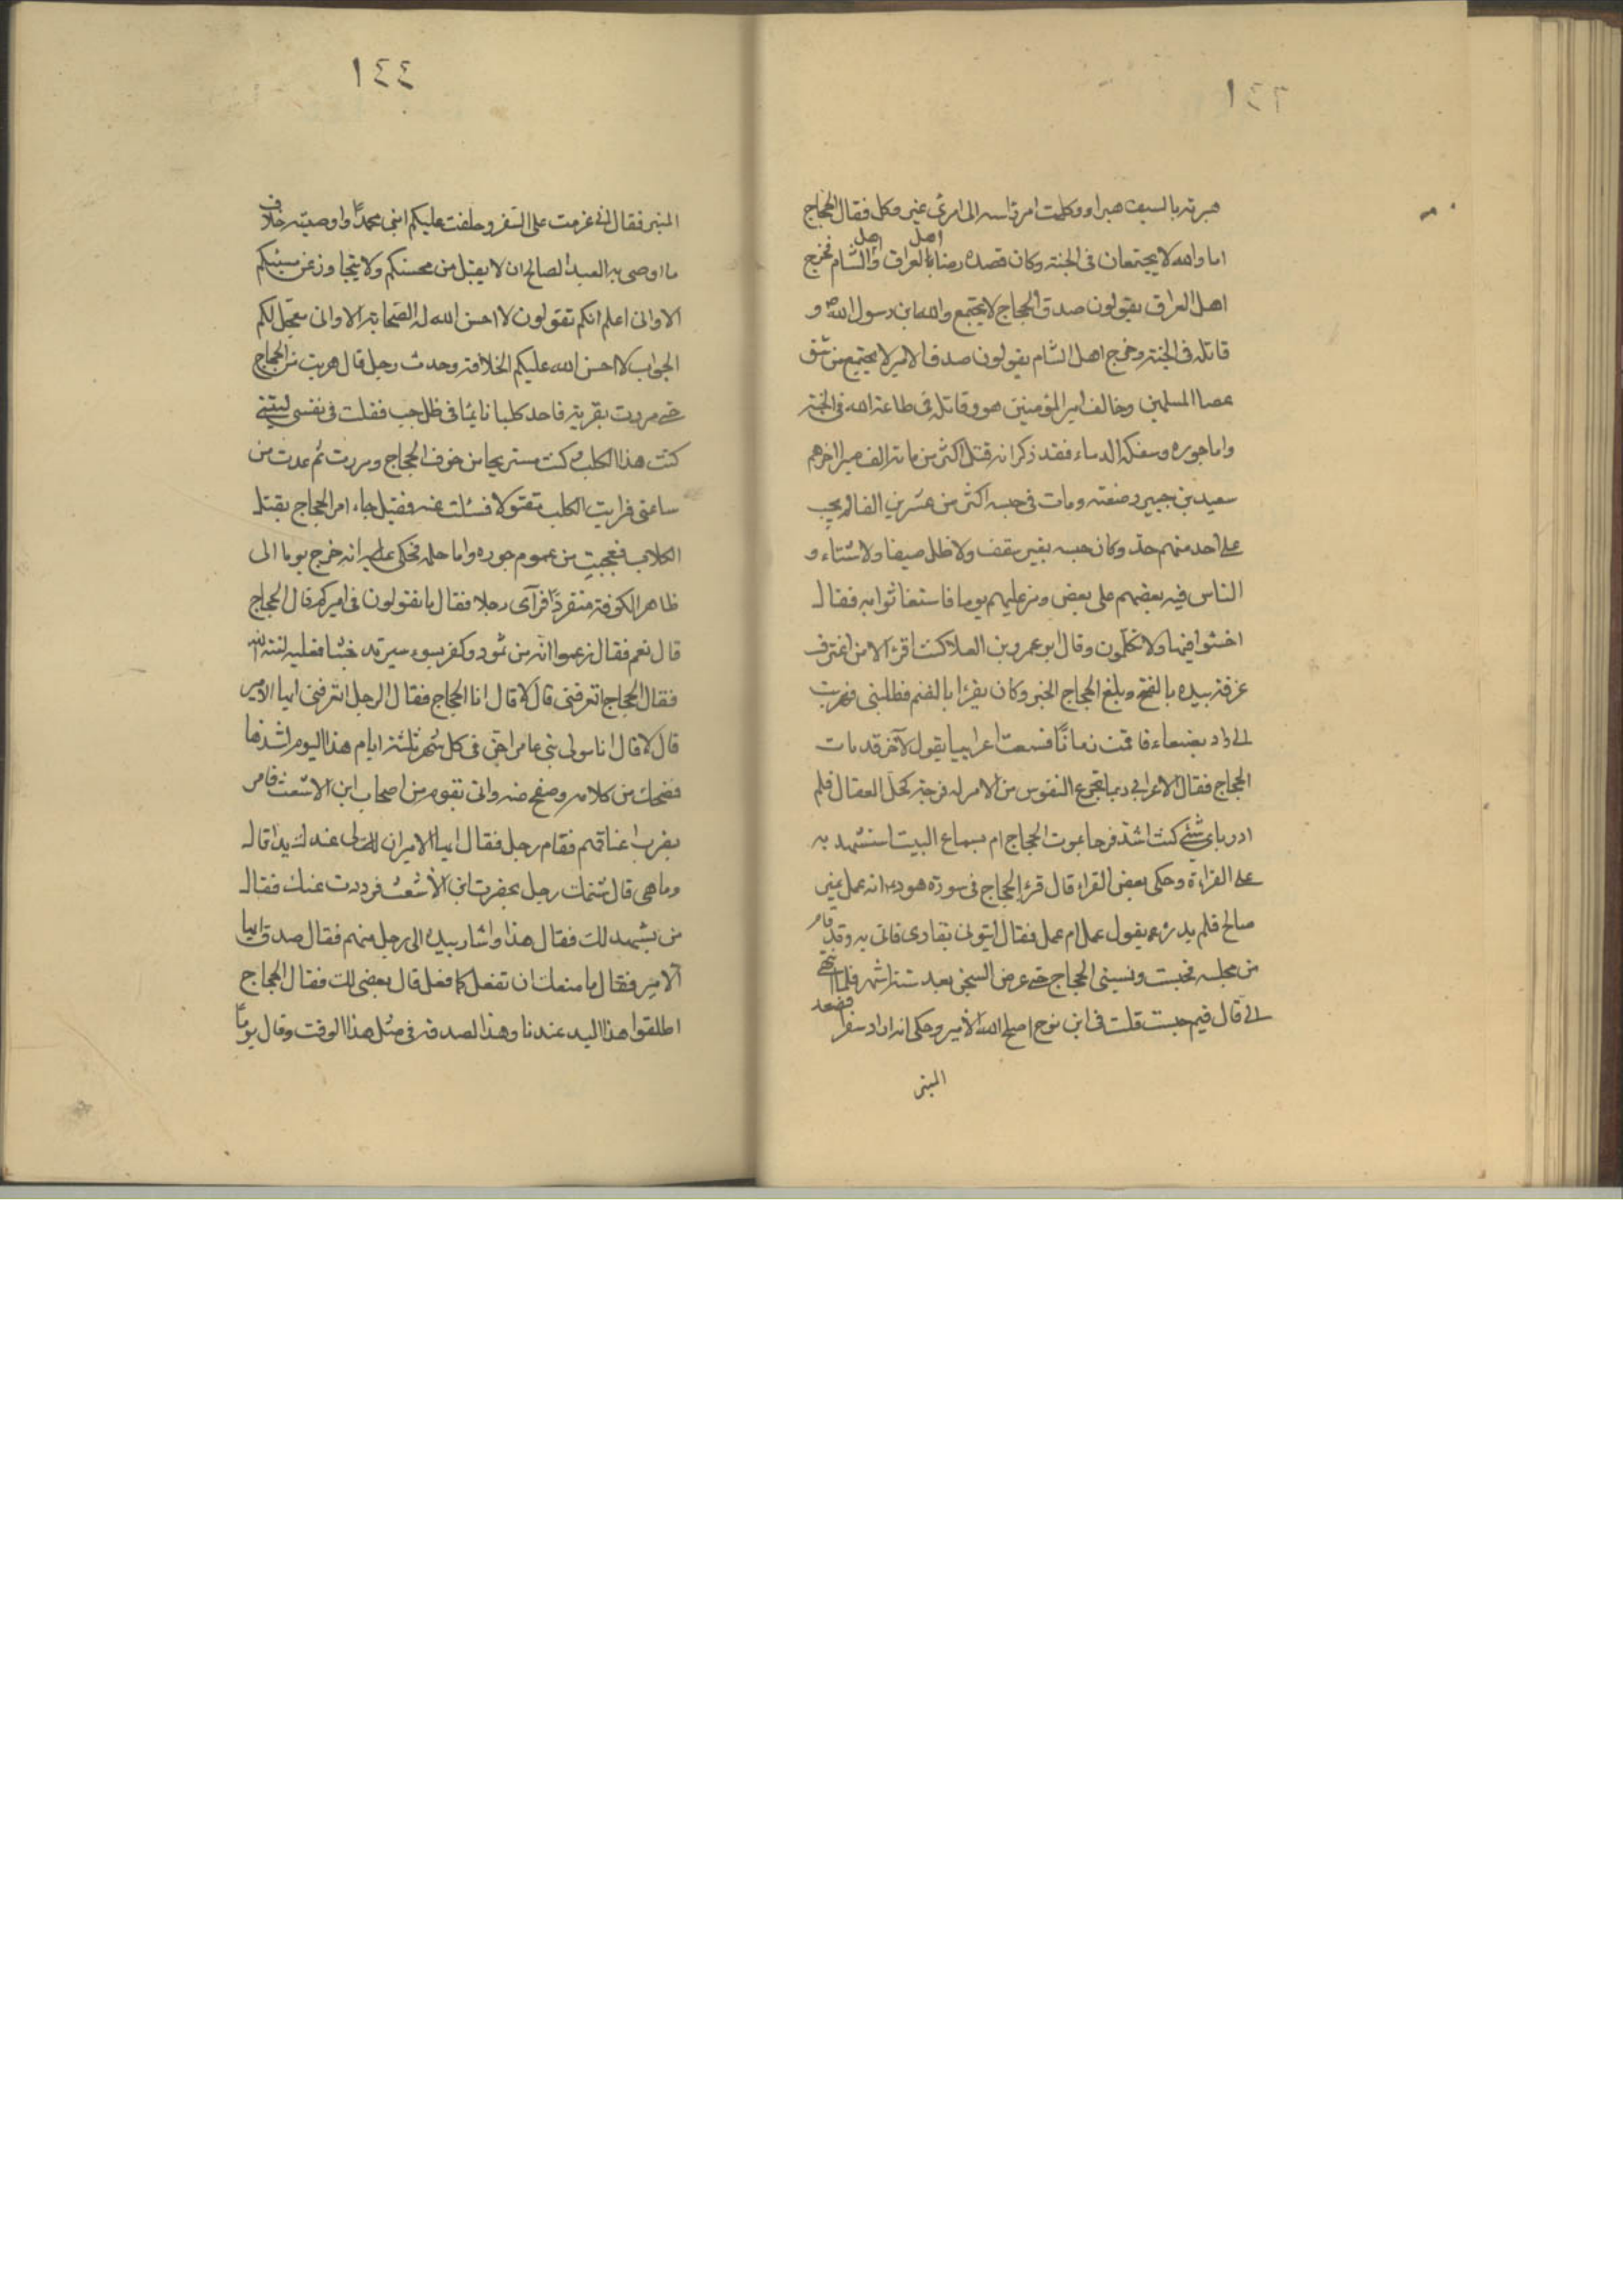 ١٤٣
هبرته بالسيف هبرا ووكلت امر راسه الى امرئ غير وكل فقال الحجاج
اما والله لا يجتمعان فى الجنة وكان قصده رضا اهل العراق و اهل الشام فخرج
اهل العراق يقولون صدق الحجاج لا يجتمع والله ابن رسول الله ص و
قاتله فى الجنة وخرج اهل الشام يقولون صدق الامير لا يجتمع من شق
عصا المسلمين وخالف امير المؤمنين هو وقاتله فى طاعة الله فى الجنة
واما جوره وسفكه الدماء فقد ذكر انه قتل اكثر من مائة الف صبرا اخرهم
سعيد بن جبير رضعنه ومات فى حبسه اكثر من عشرين الفا لم يجب
على احد منهم حد وكان حبسه بغير سقف ولا ظل صيفا ولا شتاء و
الناس فيه بعضهم على بعض ومر عليهم يوما فاستغاثوا به فقال
اخسئوا فيها ولا تكلمون وقال ابو عمرو بن العلا كنت اقرء الا من اغترف
غرفة بيده بالفتح وبلغ الحجاج الخبر وكان يقرا بالضم فطلبنى فهربت
الى واد بصنعاء فاقمت زمانًا فسمعت اعرابيا يقول لآخر قد مات
الحجاج فقال الاعرابي ربما تجزع النفوس من الامر له فرجة كحل العقال فلم
ادر باى شئ كنت اشد فرحا بموت الحجاج ام بسماع البيت استشهد به
على القراءة وحكى بعض القراء قال قرء الحجاج فى سورة هود انه عمل غير
صالح فلم يدر يقول عمل ام عمل فقال ايتونى بقارى فاتى به وقد قام
من مجلسه فحبست ونسينى الحجاج حتى عرض السجن بعد ستة اشهر فلما انتهى
الى قال فيم حبست قلت فى ابن نوح اصلح الله الأمير وحكى انه اراد سفرا فصعد
المنبر
١٤٤
المنبر فقال انى عزمت على السفر وخلفت عليكم ابنى محمدًا واوصيته خلاف
ما اوصى به العبد الصالح ان لا يقبل من محسنكم ولا يتجاوز عن مسيئكم
الا وانى اعلم انكم تقولون لا احسن الله له الصحابة الا وانى معجل لكم
الجواب لا احسن الله عليكم الخلافة وحدث رجل قال هربت من الحجاج
حتى مررت بقرية فاجد كلبا نايمًا فى ظل جب فقلت فى نفسى ليتنى
كنت هذا الكلب وكنت مستريحا من خوف الحجاج ومررت ثم عدت من
ساعتى فرايت الكلب مقتولا فسئلت عنه فقيل جاء امر الحجاج بقتل
الكلاب فعجبت من عموم جوره واما حلمه فحكى انه خرج يوما الى
ظاهر الكوفة منفردًا فرآى رجلا فقال ما تقولون فى اميركم قال الحجاج
قال نعم فقال زعموا انه من ثمود وكفى بسوء سيرته خبثا فعليه لعنة الله
فقال الحجاج اتعرفنى قال لا قال انا الحجاج فقال الرجل اتعرفنى ايها الامير
قال لا قال انا مولى بنى عامر اجن فى كل شهر ثلثة ايام هذا اليوم اشدها
فضحك من كلامه وصفح عنه واتى بقوم من اصحاب ابن الاشعث فامر
بضرب اعناقهم فقام رجل فقال ايها الامير ان لى عندك يدا قال
وما هى قال شتمك رجل بحضرت ابن الأشعث فرددت عنك فقال
من يشهد لك فقال هذا واشار بيده الى رجل منهم فقال صدق ايها
الامير فقال ما منعك ان تفعل كما فعل قال بغضى لك فقال الحجاج
اطلقوا هذا اليد عندنا وهذا لصدقه فى مثل هذا الوقت وقال يومًا